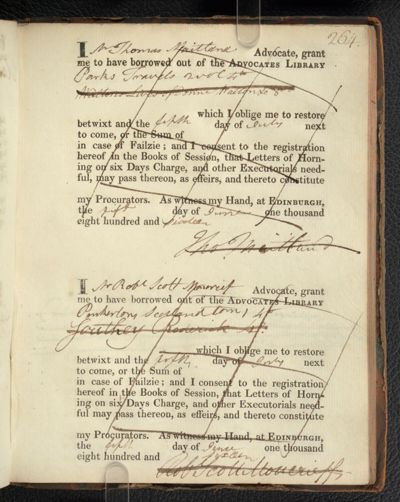 264.
I Mr Thomas Maitland Advocate, grant
me to have borrowed out of the Advocates Library
Parks Travels 2 vol 4to
which I oblige me to restore
betwixt and the fifth day of July next
to come, or the Sum of
in case of Failzie; and I consent to the registration
hereof in the Books of Session, that Letters of Horn-
ing on six Days Charge, and other Executorials need-
ful, may pass thereon, as effeirs, and thereto constitute
my Procurators. As witness my Hand, at Edinburgh,
the fifth day of June one thousand
eight hundred and sixteen
Tho Maitland
I Mr Robt Scott Moncrieff Advocate, grant
me to have borrowed out of the Advocates Library
Pinkertons Scotland tom 1 4to
Southey Roderick 4to
which I oblige me to restore
betwixt and the fifth day of July next
to come, or the Sum of
in case of Failzie; and I consent to the registration
hereof in the Books of Session, that Letters of Horn-
ing on six Days Charge, and other Executorials need-
ful may pass thereon, as effeirs, and thereto constitute
my Procurators. As witness my Hand, at Edinburgh,
the fifth day of June one thousand
eight hundred and sixteen
Robt Scott Moncrieff